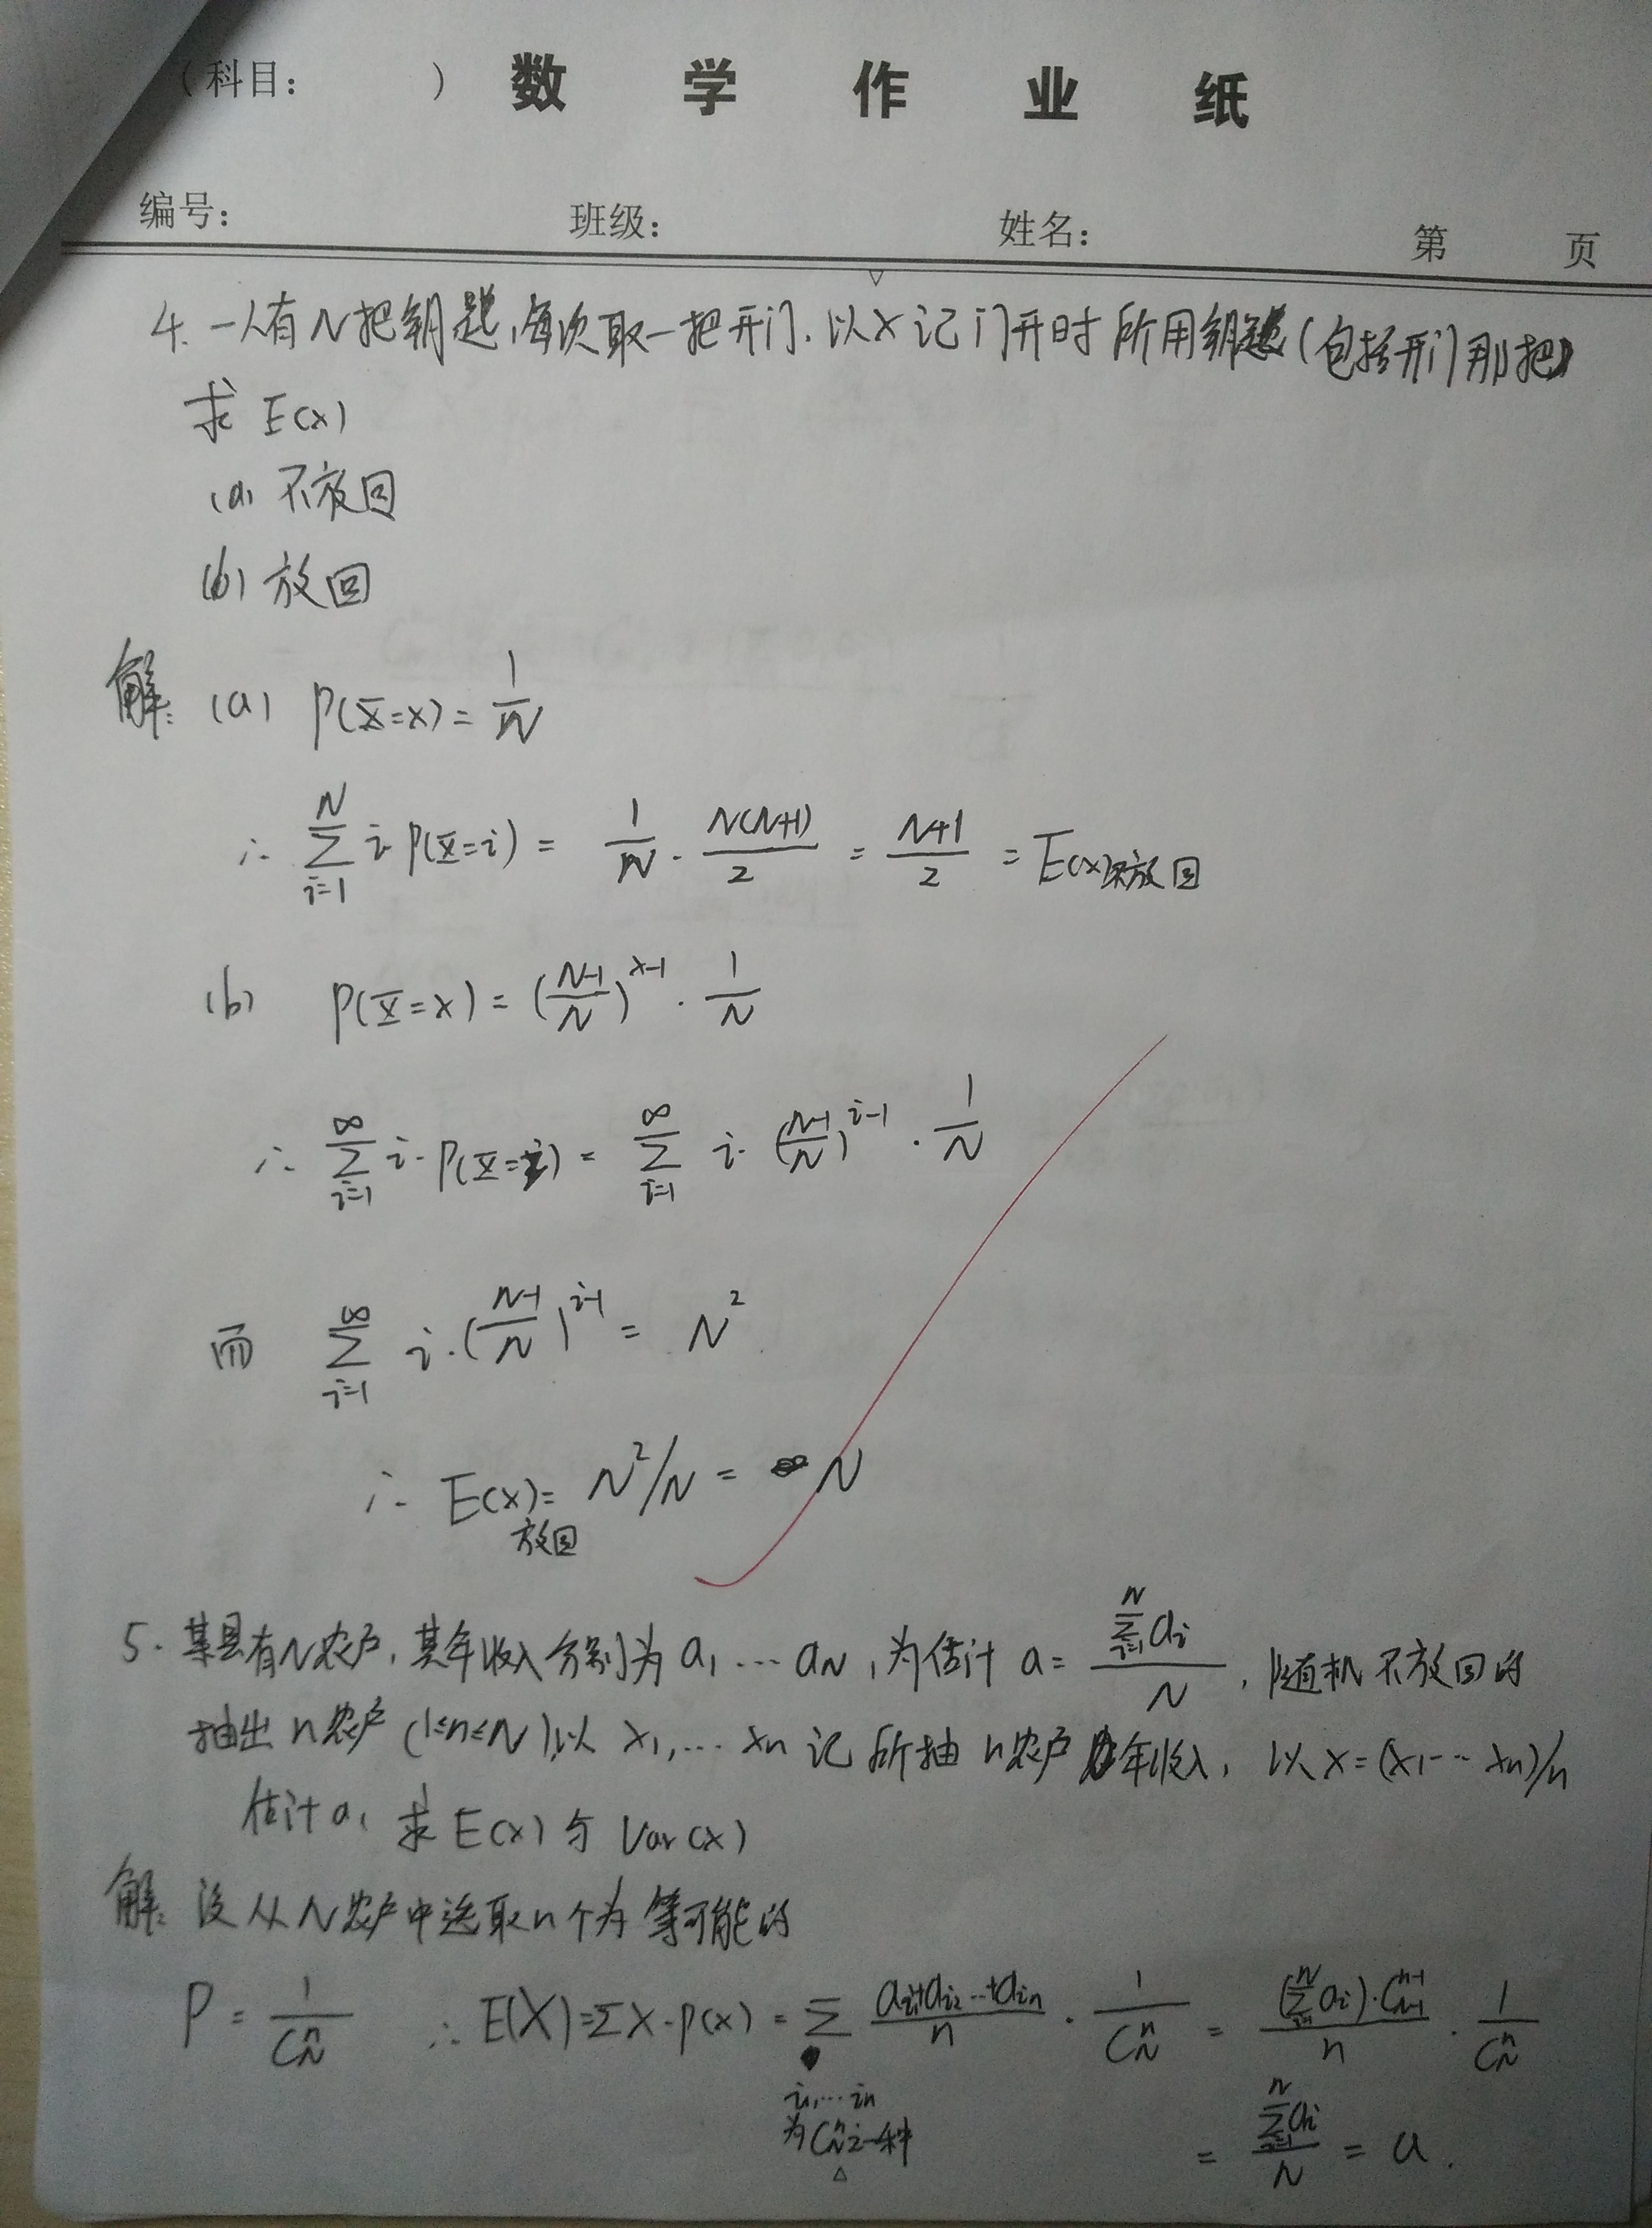 （科目：　　　）数 学 作 业 纸
编号：　班级：　姓名：　第　页
4. 一人有N把钥匙，每次取一把开门. 以X记门开时所用钥匙（包括开门那把）
求 E(x)
(a) 不放回
(b) 放回
解： (a) P(X=x) = 1/N
∴ ∑_{i=1}^{N} i·P(X=i) = 1/N · N(N+1)/2 = (N+1)/2 = E(x)不放回
(b) P(X=x) = ((N-1)/N)^{x-1} · 1/N
∴ ∑_{i=1}^{∞} i·P(X=i) = ∑_{i=1}^{∞} i·((N-1)/N)^{i-1} · 1/N
而 ∑_{i=1}^{∞} i·((N-1)/N)^{i-1} = N²
∴ E(x)= N²/N = N
放回
5. 某县有N农户，其年收入分别为 a₁ … a_N，为估计 a = ∑_{i=1}^{N} a_i / N，随机不放回的
抽出 n农户 (1≤n≤N)，以 x₁,… x_n 记所抽 n农户年收入，以 X=(x₁… x_n)/n
估计a，求 E(x) 与 Var(x)
解：设从N农户中选取n个为等可能的
P = 1/C_N^n ∴ E(X)=∑X·P(x) = ∑ (a_{i1}+a_{i2}…+a_{in})/n · 1/C_N^n = (∑_{i=1}^{N} a_i)·C_{N-1}^{n-1}/n · 1/C_N^n
i₁,… i_n
为C_N^n之一种
= ∑_{i=1}^{N} a_i / N = a.